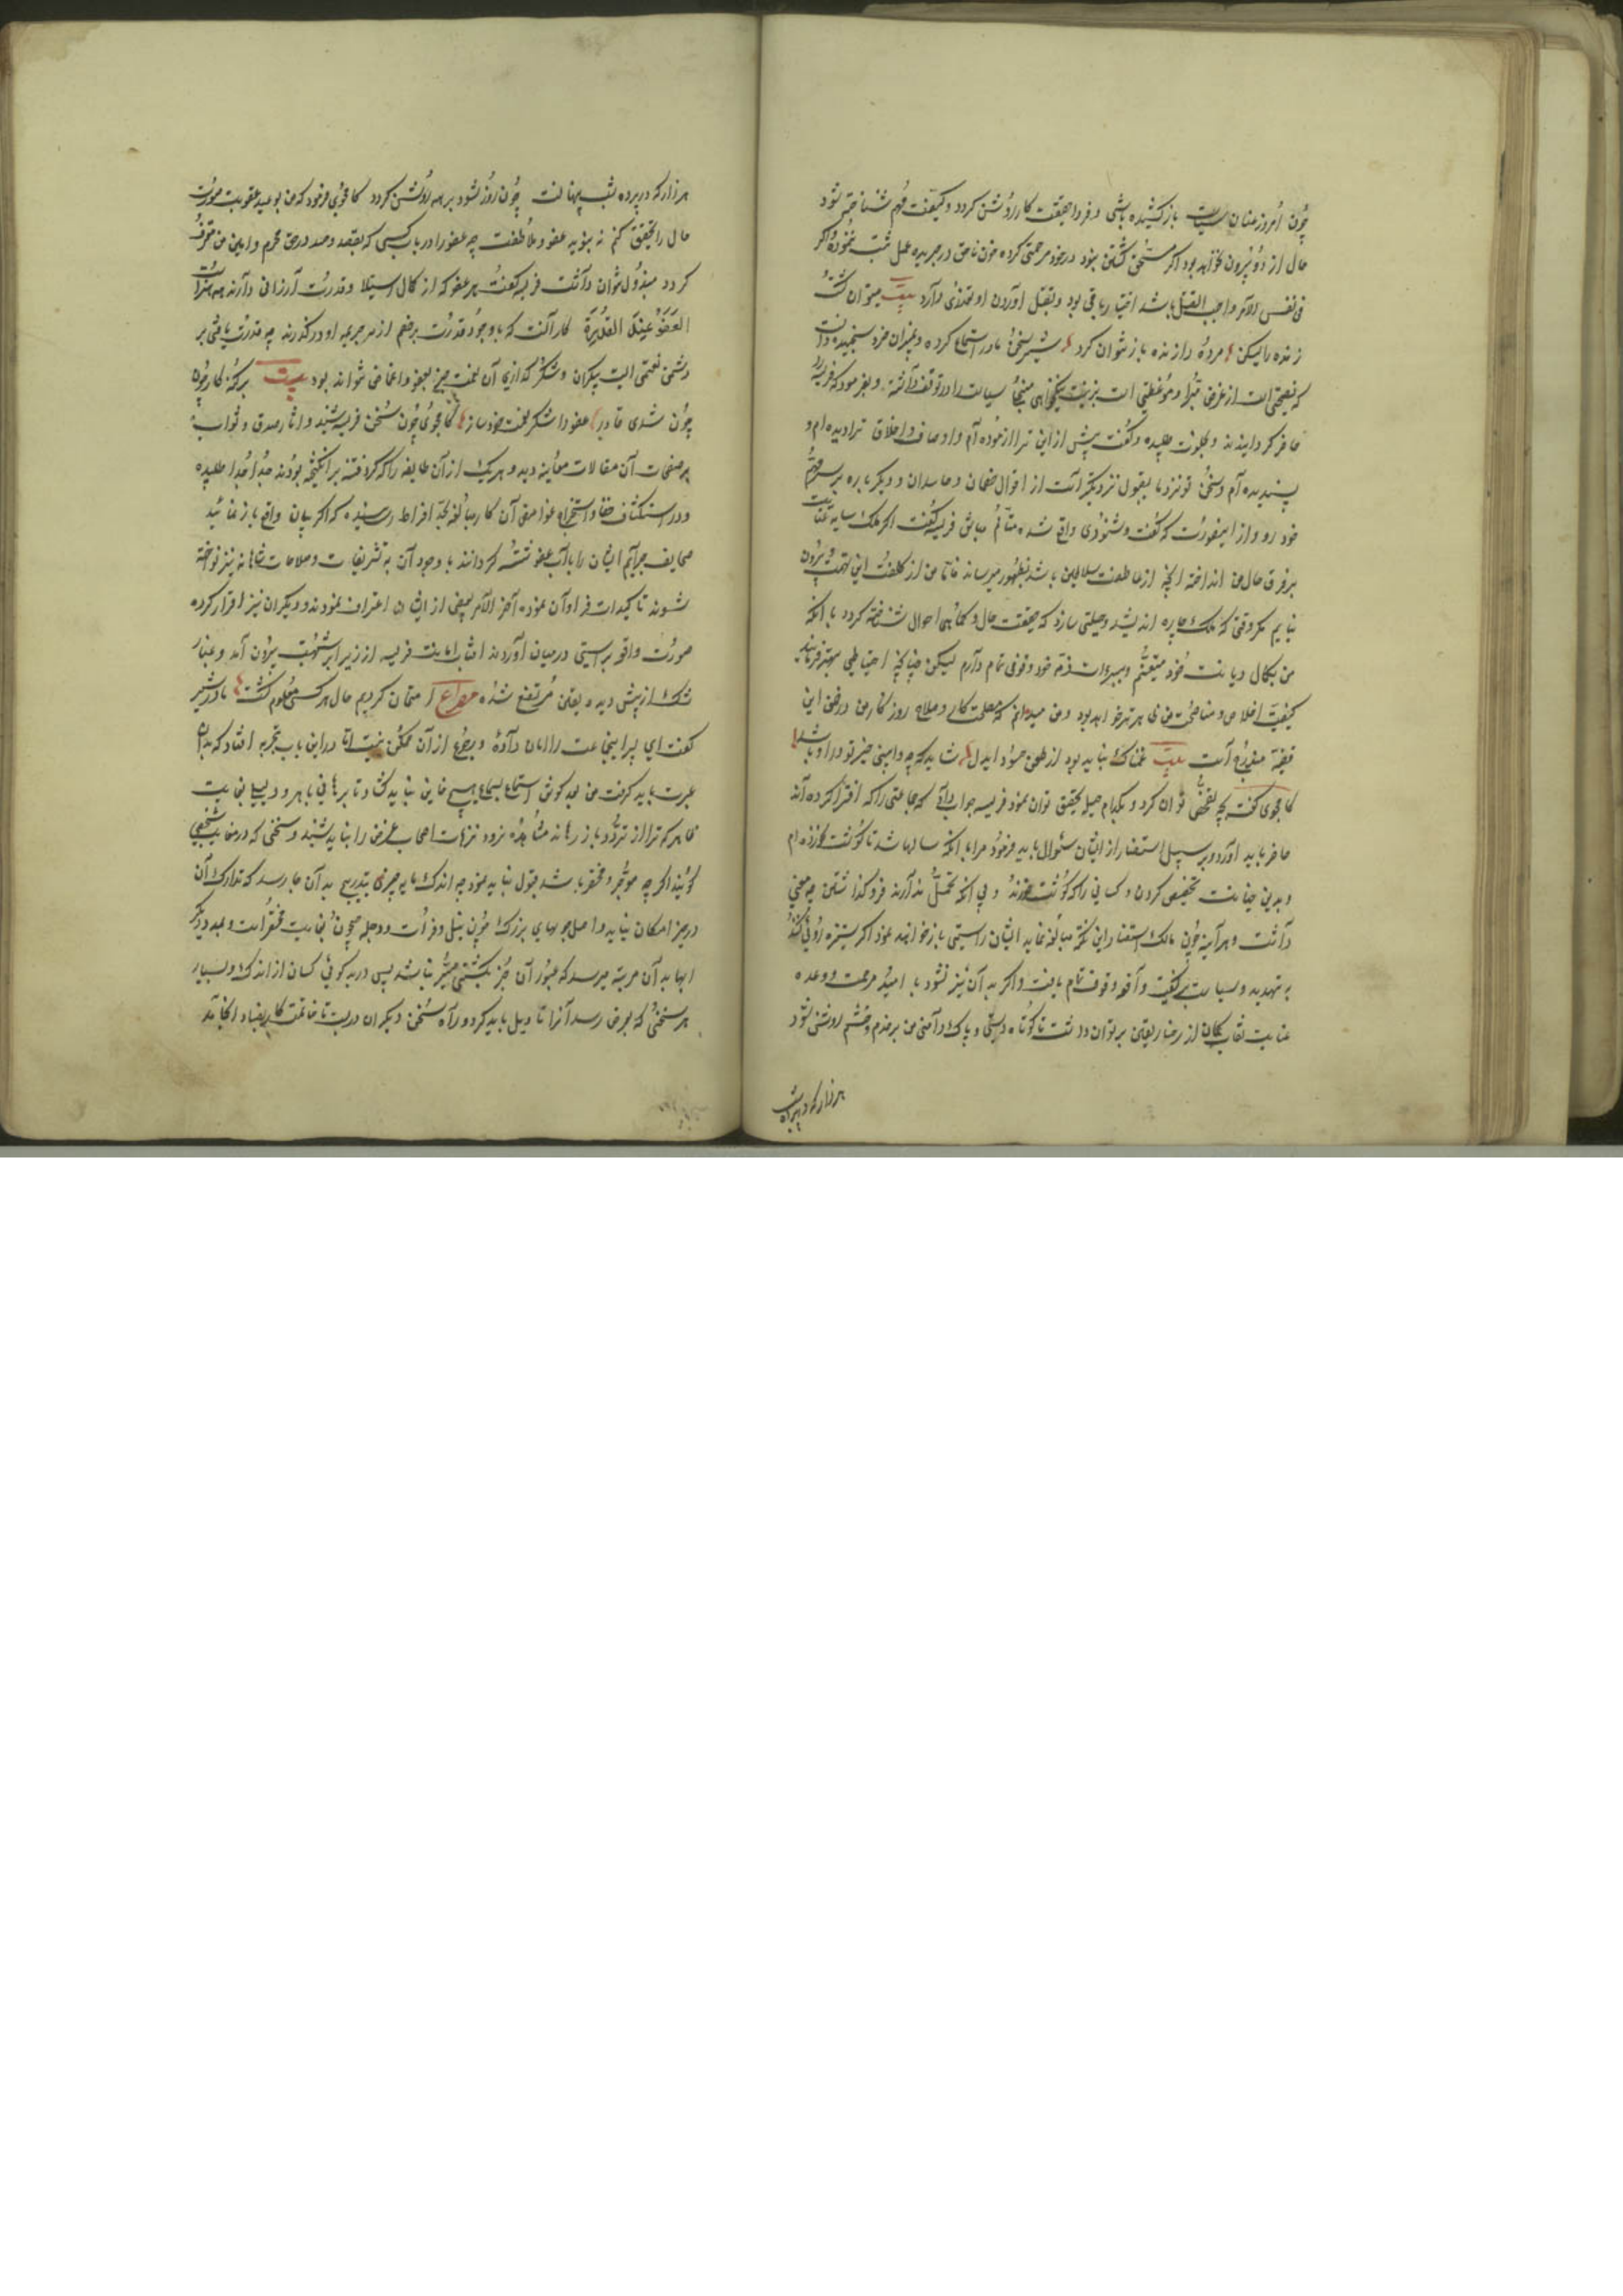 چون امروز عنان سیاست باز کشیده باشی و فردا حقیقت کار روشن کردد و کیفیت مهم شناخته شود
حال از دو بیرون نخواهد بود اکر مستحق کشتن نبود در خود مرحمتی کرده خون ناحق در جریده عمل ثبت ننموده و اکر
فی نفس الامر واجب القتل باشد اختیار باقی بود و بقتل آوردن او تعذری ندارد بیت میتوان کشت
زنده را لیکن مرده را زنده باز نتوان کرد شیر سخن مادر استماع کرده و بمیزان خرد سنجیده دانست
که نصیحتی است از غرض مبرا و موعظتی است بزینت نیکخواهی سیاست را در توقف داشته و بفرمود که فریسه را
حاضر کردانیدند و بخلوت طلبیده و کفت پیش از این ترا آزموده‌ام و اوصاف و اخلاق ترا دیده‌ام و
پسندیده‌ام و سخن تو نزد ما بقبول نزدیکتر است از اقوال خصمان و حاسدان و دیکر باره بر سر مهم
خود رو و از اینصورت که کفت و شنودی واقع شده متالم مباش فریسه کفت اکر ملک سایه عنایت
بر فرق حال من انداخته انچه از عاطفت سلاطین باشد بظهور میرساند فاما من از کلفت این تهمت بیرون
نیایم مکر وقتی که ملک چاره اندیشد و حیلتی سازد که حقیقت حال و کماهی احوال شناخته کردد با آنکه
من بکمال دیانت خود متیقنم و ببراءت ذمه خود وقوفی تمام دارم لیکن چنانچه احتیاطی بیشتر فرمایند
کیفیت اخلاص و مناصحت من ظاهرتر خواهد بود و من میدانم که مصلحت کار و صلاح روزکار من در ضمن این
قضیه مندرج است بیت غمناک نباید بود از طعن حسود ایدل شاید که چو وابینی خیر تو در او باشد
کامجوی کفت بچه تفحص توان کرد و بکدام حیل تحقیق توان نمود فریسه جواب داد که جماعتی را که افترا کرده‌اند
حاضر باید آورد و بر سبیل استفسار از ایشان سئوال باید فرمود مرا با آنکه سالها شد تا کوشت نخورده‌ام
و بدین خیانت تخصیص کردن و کسانی را که کوشت خورند و بی آنکه تحمل ندارند فروکذاشتن چه معنی
داشت و هر آینه چون ملک استفسار این نکته مبالغه نماید ایشان راستی باز خواهند نمود اکر ستیزه‌رویی کنند
به تهدید و سیاست بر کیفیت واقعه وقوف تمام یافت و اکر به آن نیز نشود با امید مرحمت و وعده
عنایت نقاب کمان از رخسار یقین بر توان داشت تا کوتاه دستی و پاک دامنی من بر خدم و حشم روشن شود
هر راز که در پرده شب
هر راز که در پرده شب پنهانست چون روز شود بر همه روشن کردد کامجوی فرمود که من بوعید عقوبت صورت
حال را تحقیق کنم نه بنوید عفو و ملاطفت چه عفو را در باب کسی که بقصد و حسد در حق محرم و امین من معترف
کردد مبذول نتوان داشت فریسه کفت هر عفو که از کمال استیلا و قدرت ارزانی دارند همه هنر است
العفو عند القدرة کار آنست که با وجود قدرت بر خصم از سر جریمه او درکذرند چه قدرت یافتن بر
دشمن نعمتی است بیکران و شکرکذاری آن نعمت جز بعفو و اغماض نتواند بود بیت بر کنه‌کار چون
چون شدی قادر عفو را شکر نعمت خود ساز کامجوی چون سخن فریسه شنید و آثار صدق و ثواب
بر صفحات آن مقالات معاینه دید و هر یک از آن طایفه را که کرد فتنه برانکیخته بودند جدا جدا طلبیده
و در استکشاف خفا و استخراج غوامض آن کار مبالغه بحد افراط رسانیده که اکر بیان واقع باز نمائید
صحایف جرایم ایشان را بآب عفو شسته کردانند با وجود آن به تشریفات و صلاحات شاهانه نیز نواخته
شوند تاکیدات فراوان نموده آخر الامر بعضی از ایشان اعتراف نمودند و دیکران نیز اقرار کرده
صورت واقعه براستی در میان آوردند آفتاب امانت فریسه از زیر ابر شبهت بیرون آمد و غبار
شک از پیش دیده یقین مرتفع شده مصراع امتحان کردیم حال هر کسی معلوم کشت مادر شیر
کفت ای پسر اینجماعت را امان داده و رجوع از آن ممکن نیست اما در این باب تجربه افتاد که بدان
عبرت باید کرفت من بعد کوش استماع بسماع هیچ خاین نباید کشاد تا برهانی باهر و دلیلی ظاهر
ظاهر که ترا از تردد باز رهاند مشاهده نرود ترهات اصحاب غرض را نباید شنید و سخنی که در معایب شخصی
کویند اکرچه موجز و مختصر باشد قبول نباید نمود چه اندک مایه چیزی بتدریج بدان جا رسد که تدارک آن
در حیز امکان نیاید و اصل جویهای بزرک چون نیل و فرات و دجله جیحون بغایت مختصر است و بمدد دیکر
ابها بدآن مرتبه میرسد که عبور آن جز بکشتی میسر نباشد پس در بدکوئی کسان از اندک و بسیار
هر سخن که بعرض رسد آنرا تاویل باید کرد و راه سخن دیکران دربست تا خاتمت کار بفساد نکشاند